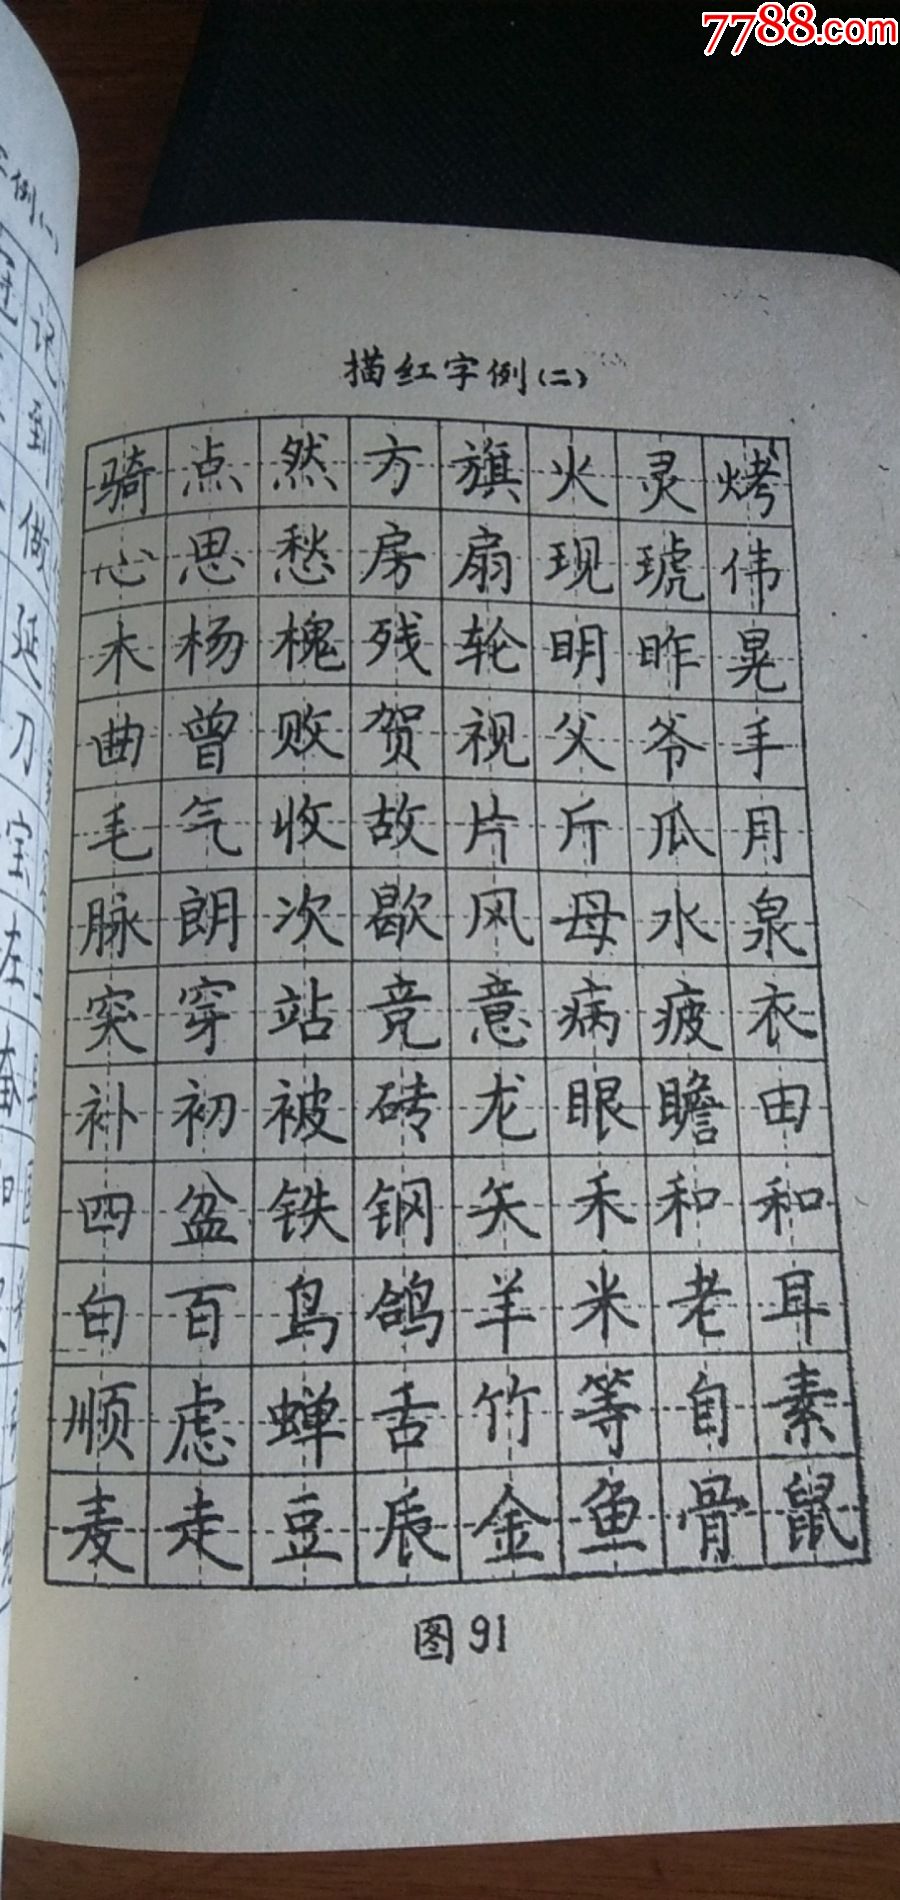 7788.com
字例(一)
记
到
做
延
刀
宝
左
描红字例(二)
骑点然方旗火灵烤
心思愁房扇现琥伟
木杨槐残轮明昨晃
曲曾败贺视父爷手
毛气收故片斤瓜月
脉朗次歇风母水泉
突穿站竞意病疲衣
补初被砖龙眼瞻田
四盆铁钢矢禾和和
白百鸟鸽羊米老耳
顺虑蝉舌竹等自素
麦走豆辰金鱼骨鼠
图91